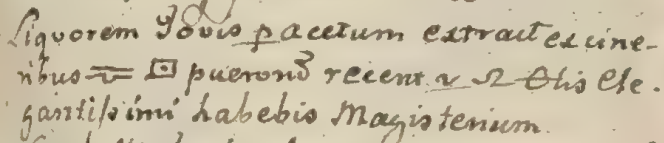 Liquorem Jovis p acetum extract ex cine-
ribus 🜄 🝕 puerorum recent v ♎ Olis ele-
gantissimi habebis Magisterium.